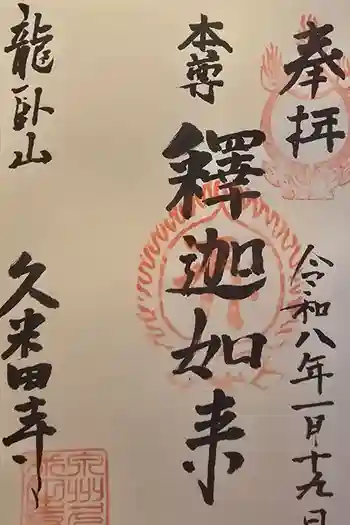 奉拝
令和八年一月十九日
本尊
釋迦如来
龍臥山
久米田寺